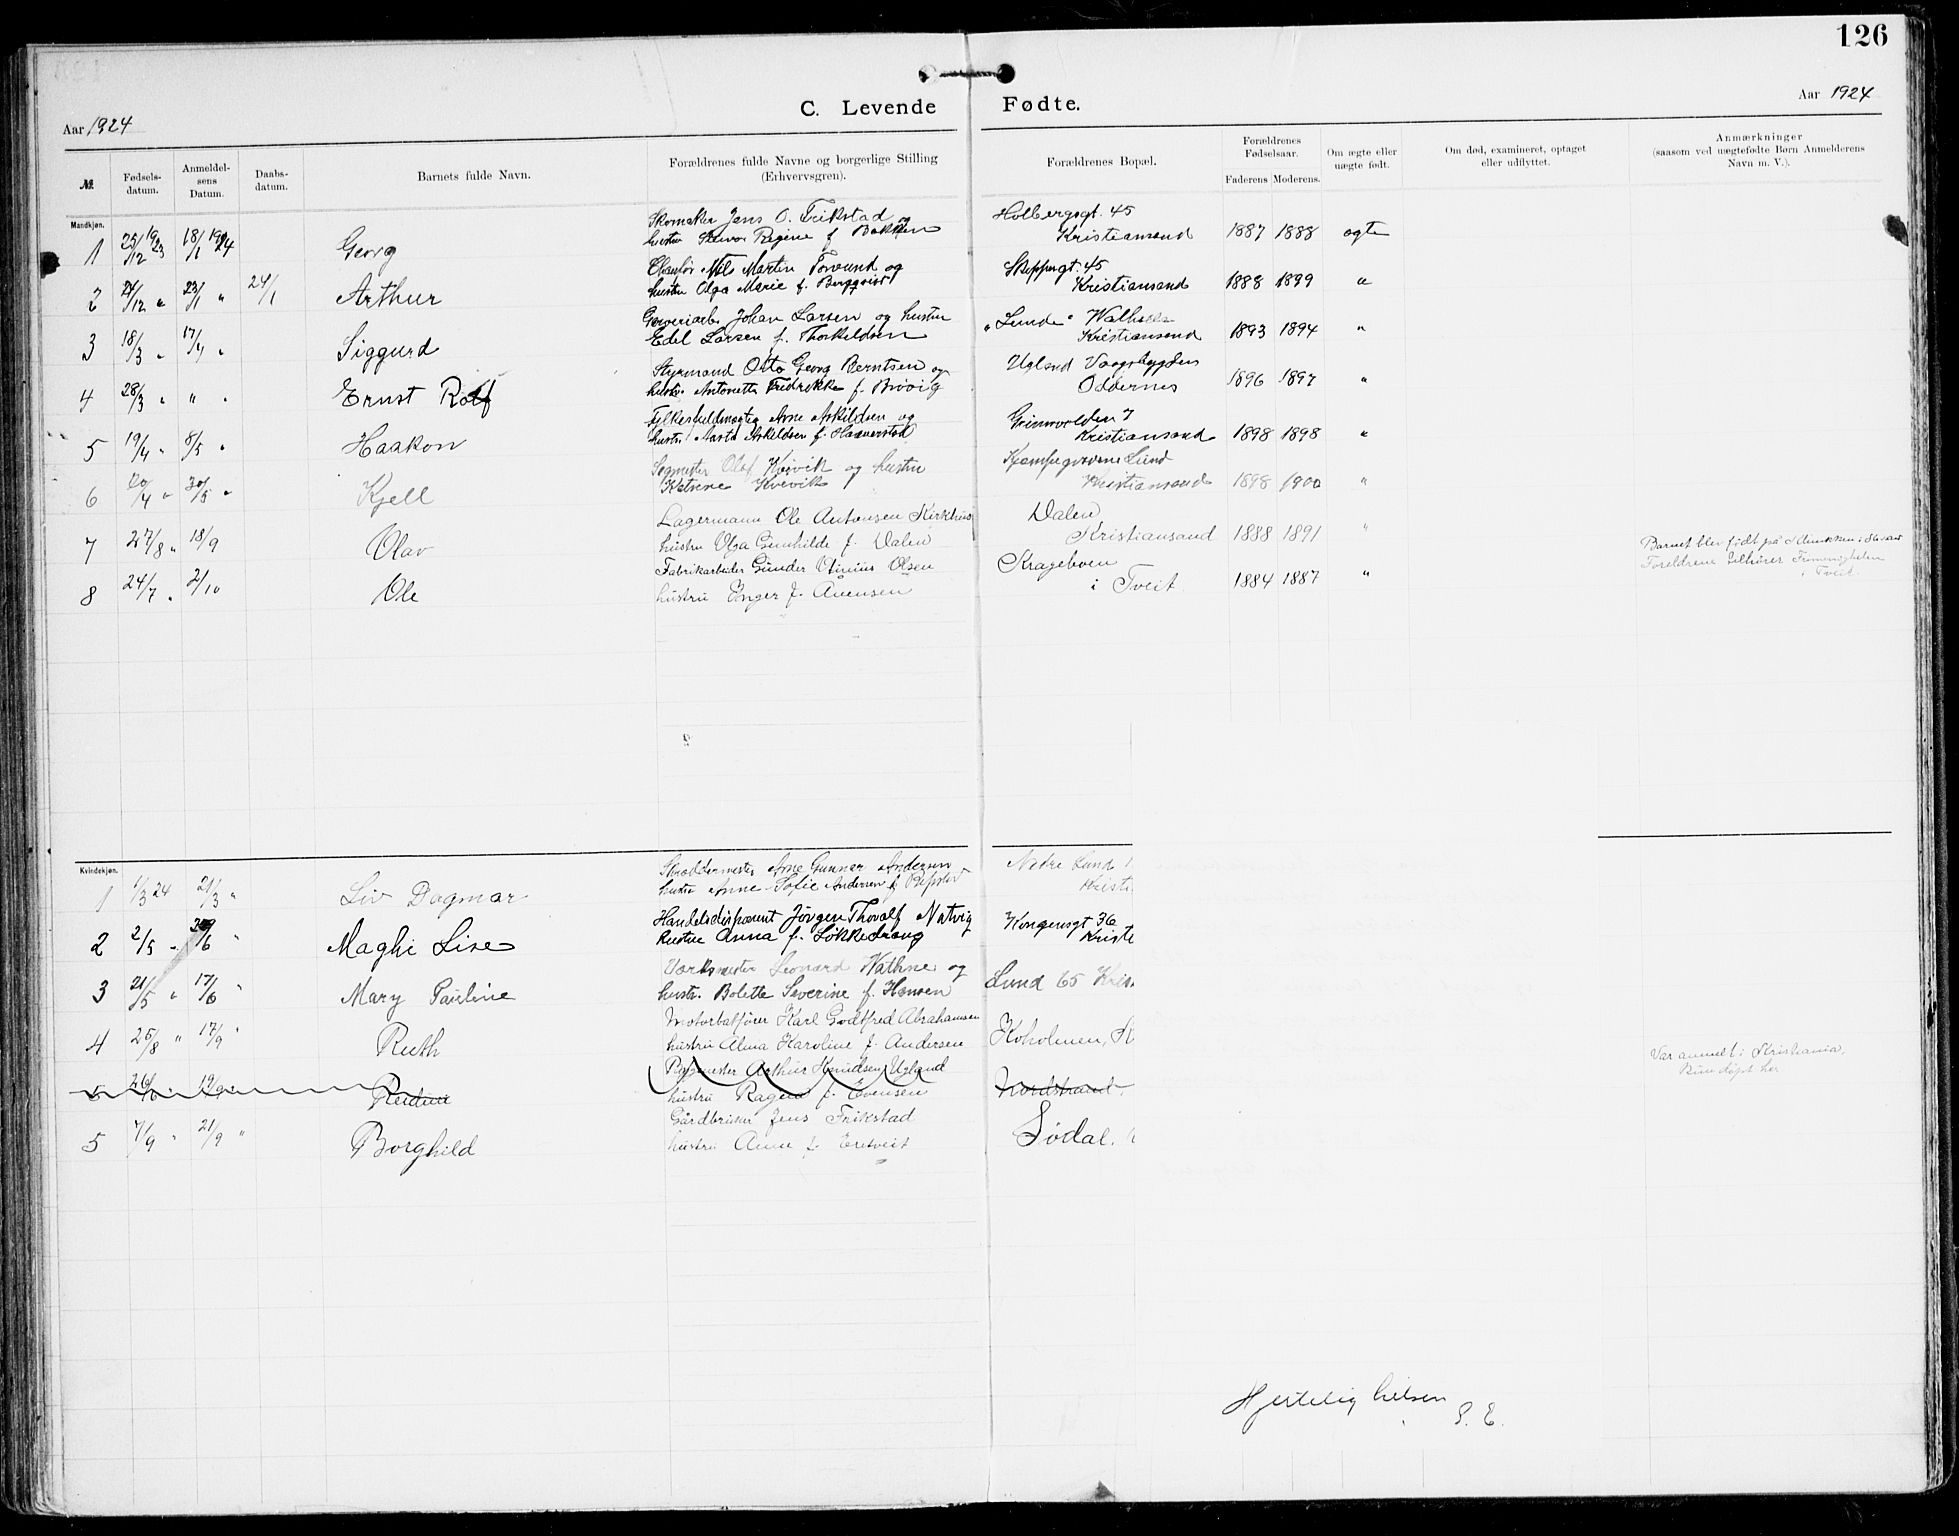 126
C. Levende Fødte.
Aar 1924
Aar 1924
№
Fødsels-datum.
Anmeldel-sens Datum.
Daabs-datum.
Barnets fulde Navn.
Forældrenes fulde Navne og borgerlige Stilling (Erhvervsgren).
Forældrenes Bopæl.
Forældrenes Fødselsaar.
Faderens
Moderens.
Om ægte eller uægte født.
Om død, examineret, optaget eller udflyttet.
Anmærkninger (saasom ved uægtefødte Børn Anmelderens Navn m. V.).
Mandkjøn.
Skomaker Jens O. Frikstad og Holbergsgt. 45
1 25/12 1923 18/1 1924 Georg hustru Regine f. Bakken Kristiansand 1887 1888 ægte
Chauffør Nils Martin Torsund og Skippergt. 45
2 24/12 " 23/1 " 24/1 Arthur hustru Olga Marie f. Bergqvist Kristiansand 1888 1899 "
Garveriarb. Johan Larsen og hustru "Lunde"
3 18/3 " 17/4 " Siggurd Edel Larsen f. Thorkildsen Kristiansand 1893 1894 "
Styrmand Otto Georg Berntsen og Ugland Vaagsbygden
4 28/3 " " " Ernst Rolf hustru Antonette Fredrikke f. Brøvig Oddernes 1896 1897 "
Fylkesfuldmægtig Arne Askildsen og Grimvolden 7
5 19/4 " 8/5 " Haakon hustr. Marta Askildsen f. Haaverstad Kristiansand 1898 1898 "
Sagmester Olaf Kvivik og hustru Lund
6 20/4 " 30/5 " Kjell Kristiansand 1898 1900 "
Lagermann Ole Antonsen Kirkhus Dalen
7 27/8 " 18/9 Olav hustru Olga Gunhilde f. Dalen Kristiansand 1888 1891 "
Fabrikarbeider Gunder Olsen Krageboen
8 24/7 " 2/10 Ole hustru Inger f. Aanensen i Tveit 1884 1887 "
Barnet blev født på
Foreldrene tilhører Frimenigheten
i Tveit.
Kvindekjøn.
Skræddermester Arne Gunnar Andersen Nedre Lund
1 1/3 24 21/3 " Liv Dagmar hustru Anne Sofie Andersen f. Kristi
Handelsdisponent Jørgen Thorolf Natvig Kongensgt 36
2 2/5 " Maghi Lise hustru Anna f. Løkkedrang Kristi
Verksmester Leonard Wathne og
3 21/5 " 17/6 " Mary Pauline hustr. Bolette Severine f. Hansen Lund 65 Kris
Motorbatfører Karl Godtfred Abrahamsen
4 25/8 " 17/9 " Ruth hustru Alma Karoline f. Andersen Koholmen, K
Arthur Knudsen Ugland
Reidun hustru Ragna f. Evensen Nordstrand
Var anmelt i Kristiania,
Kun døpt her
Gårdbruker Jens Frikstad
5 7/9 " 21/9 " Borghild hustru Anne f. Eretveit Sødal.
Hjertelig hilsen
S. E.